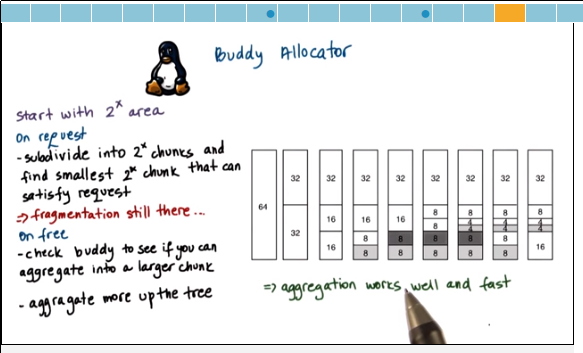 Buddy Allocator
start with 2^x area
on request
- subdivide into 2^x chunks and
find smallest 2^x chunk that can
satisfy request
=> fragmentation still there...
on free
- check buddy to see if you can
aggregate into a larger chunk
- aggragate more up the tree
64
32 32
32 16 16
32 16 8 8
32 16 8 8
32 8 8 8 8
32 8 4 4 8 8
32 8 4 4 8 8
32 8 4 4 16
=> aggregation works well and fast